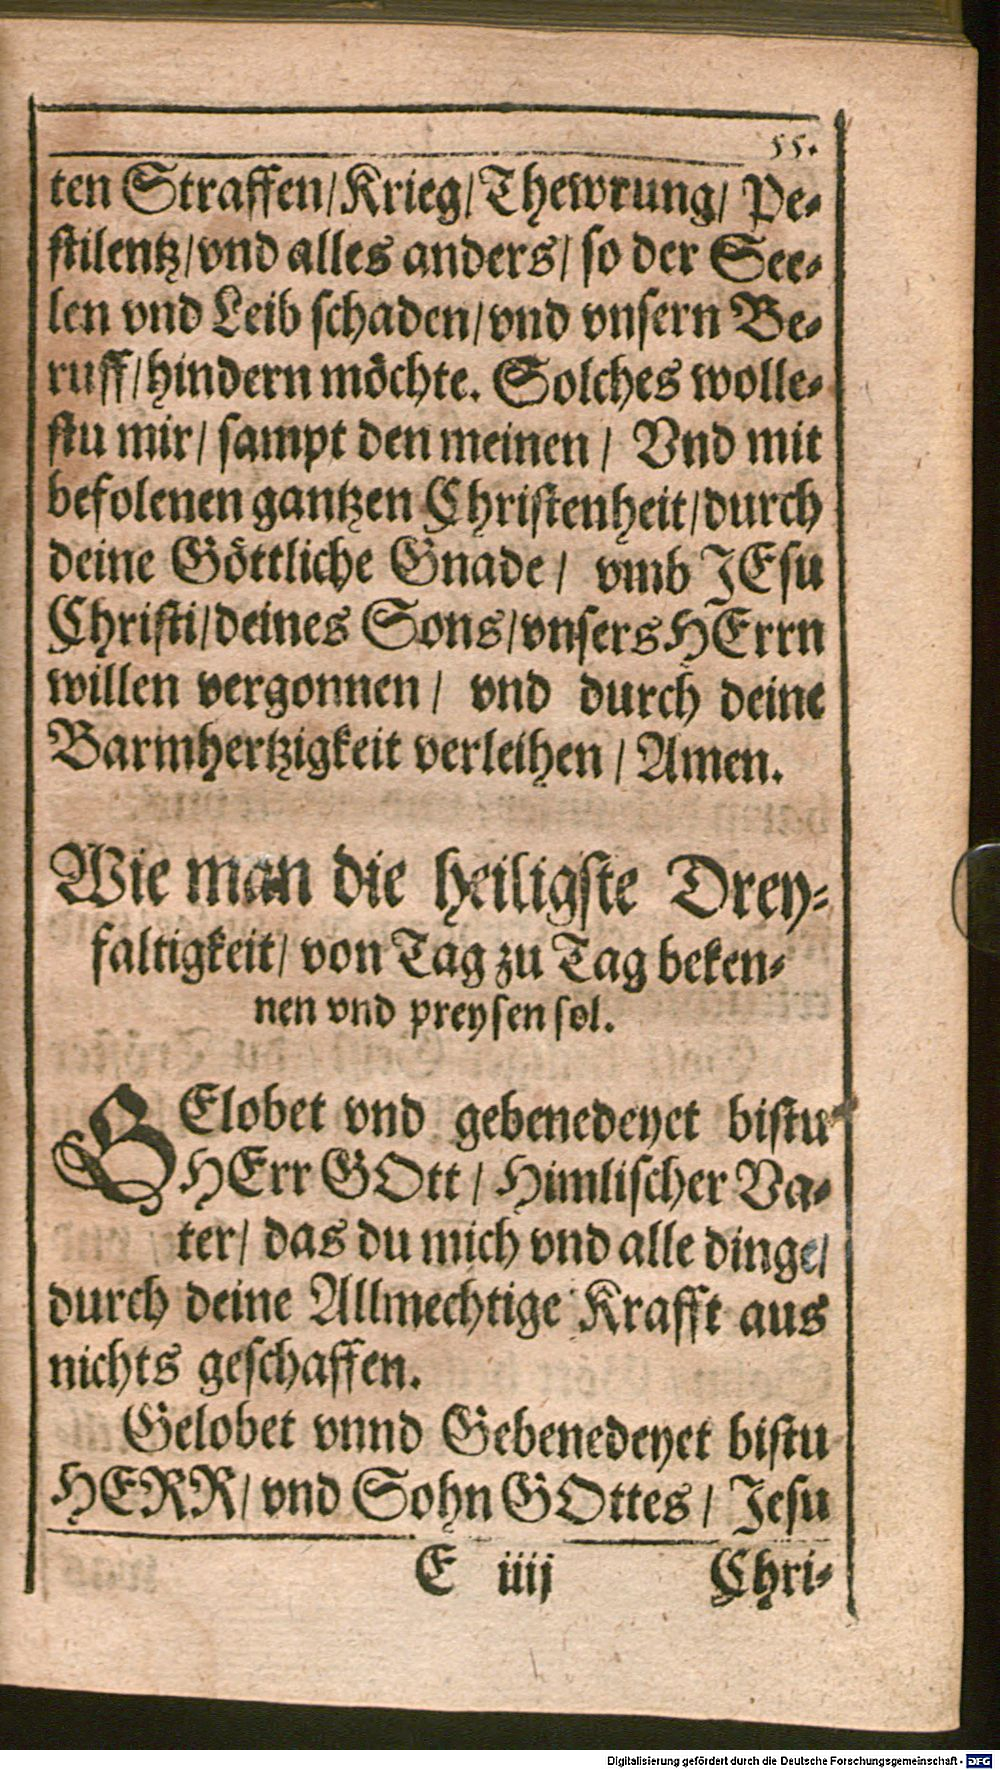 55.
ten Straffen/Krieg/Thewrung/ Pe-
stilentz/vnd alles anders/ so der See-
len vnd Leib schaden/vnd vnsern Be-
ruff/hindern möchte. Solches wolle-
stu mir/ sampt den meinen/ Vnd mit
befolenen gantzen Christenheit/durch
deine Göttliche Gnade/ vmb JEsu
Christi/deines Sons/vnsers HErrn
willen vergonnen/ vnd durch deine
Barmhertzigkeit verleihen/ Amen.
Wie man die heiligste Drey-
faltigkeit/ von Tag zu Tag beken-
nen vnd preysen sol.
GElobet vnd gebenedeyet bistu
HErr GOtt/ Himlischer Va-
ter/ das du mich vnd alle dinge/
durch deine Allmechtige Krafft aus
nichts geschaffen.
Gelobet vnnd Gebenedeyet bistu
HERR/ vnd Sohn GOttes/ Jesu
E iiij Chri-
Digitalisierung gefördert durch die Deutsche Forschungsgemeinschaft - DFG